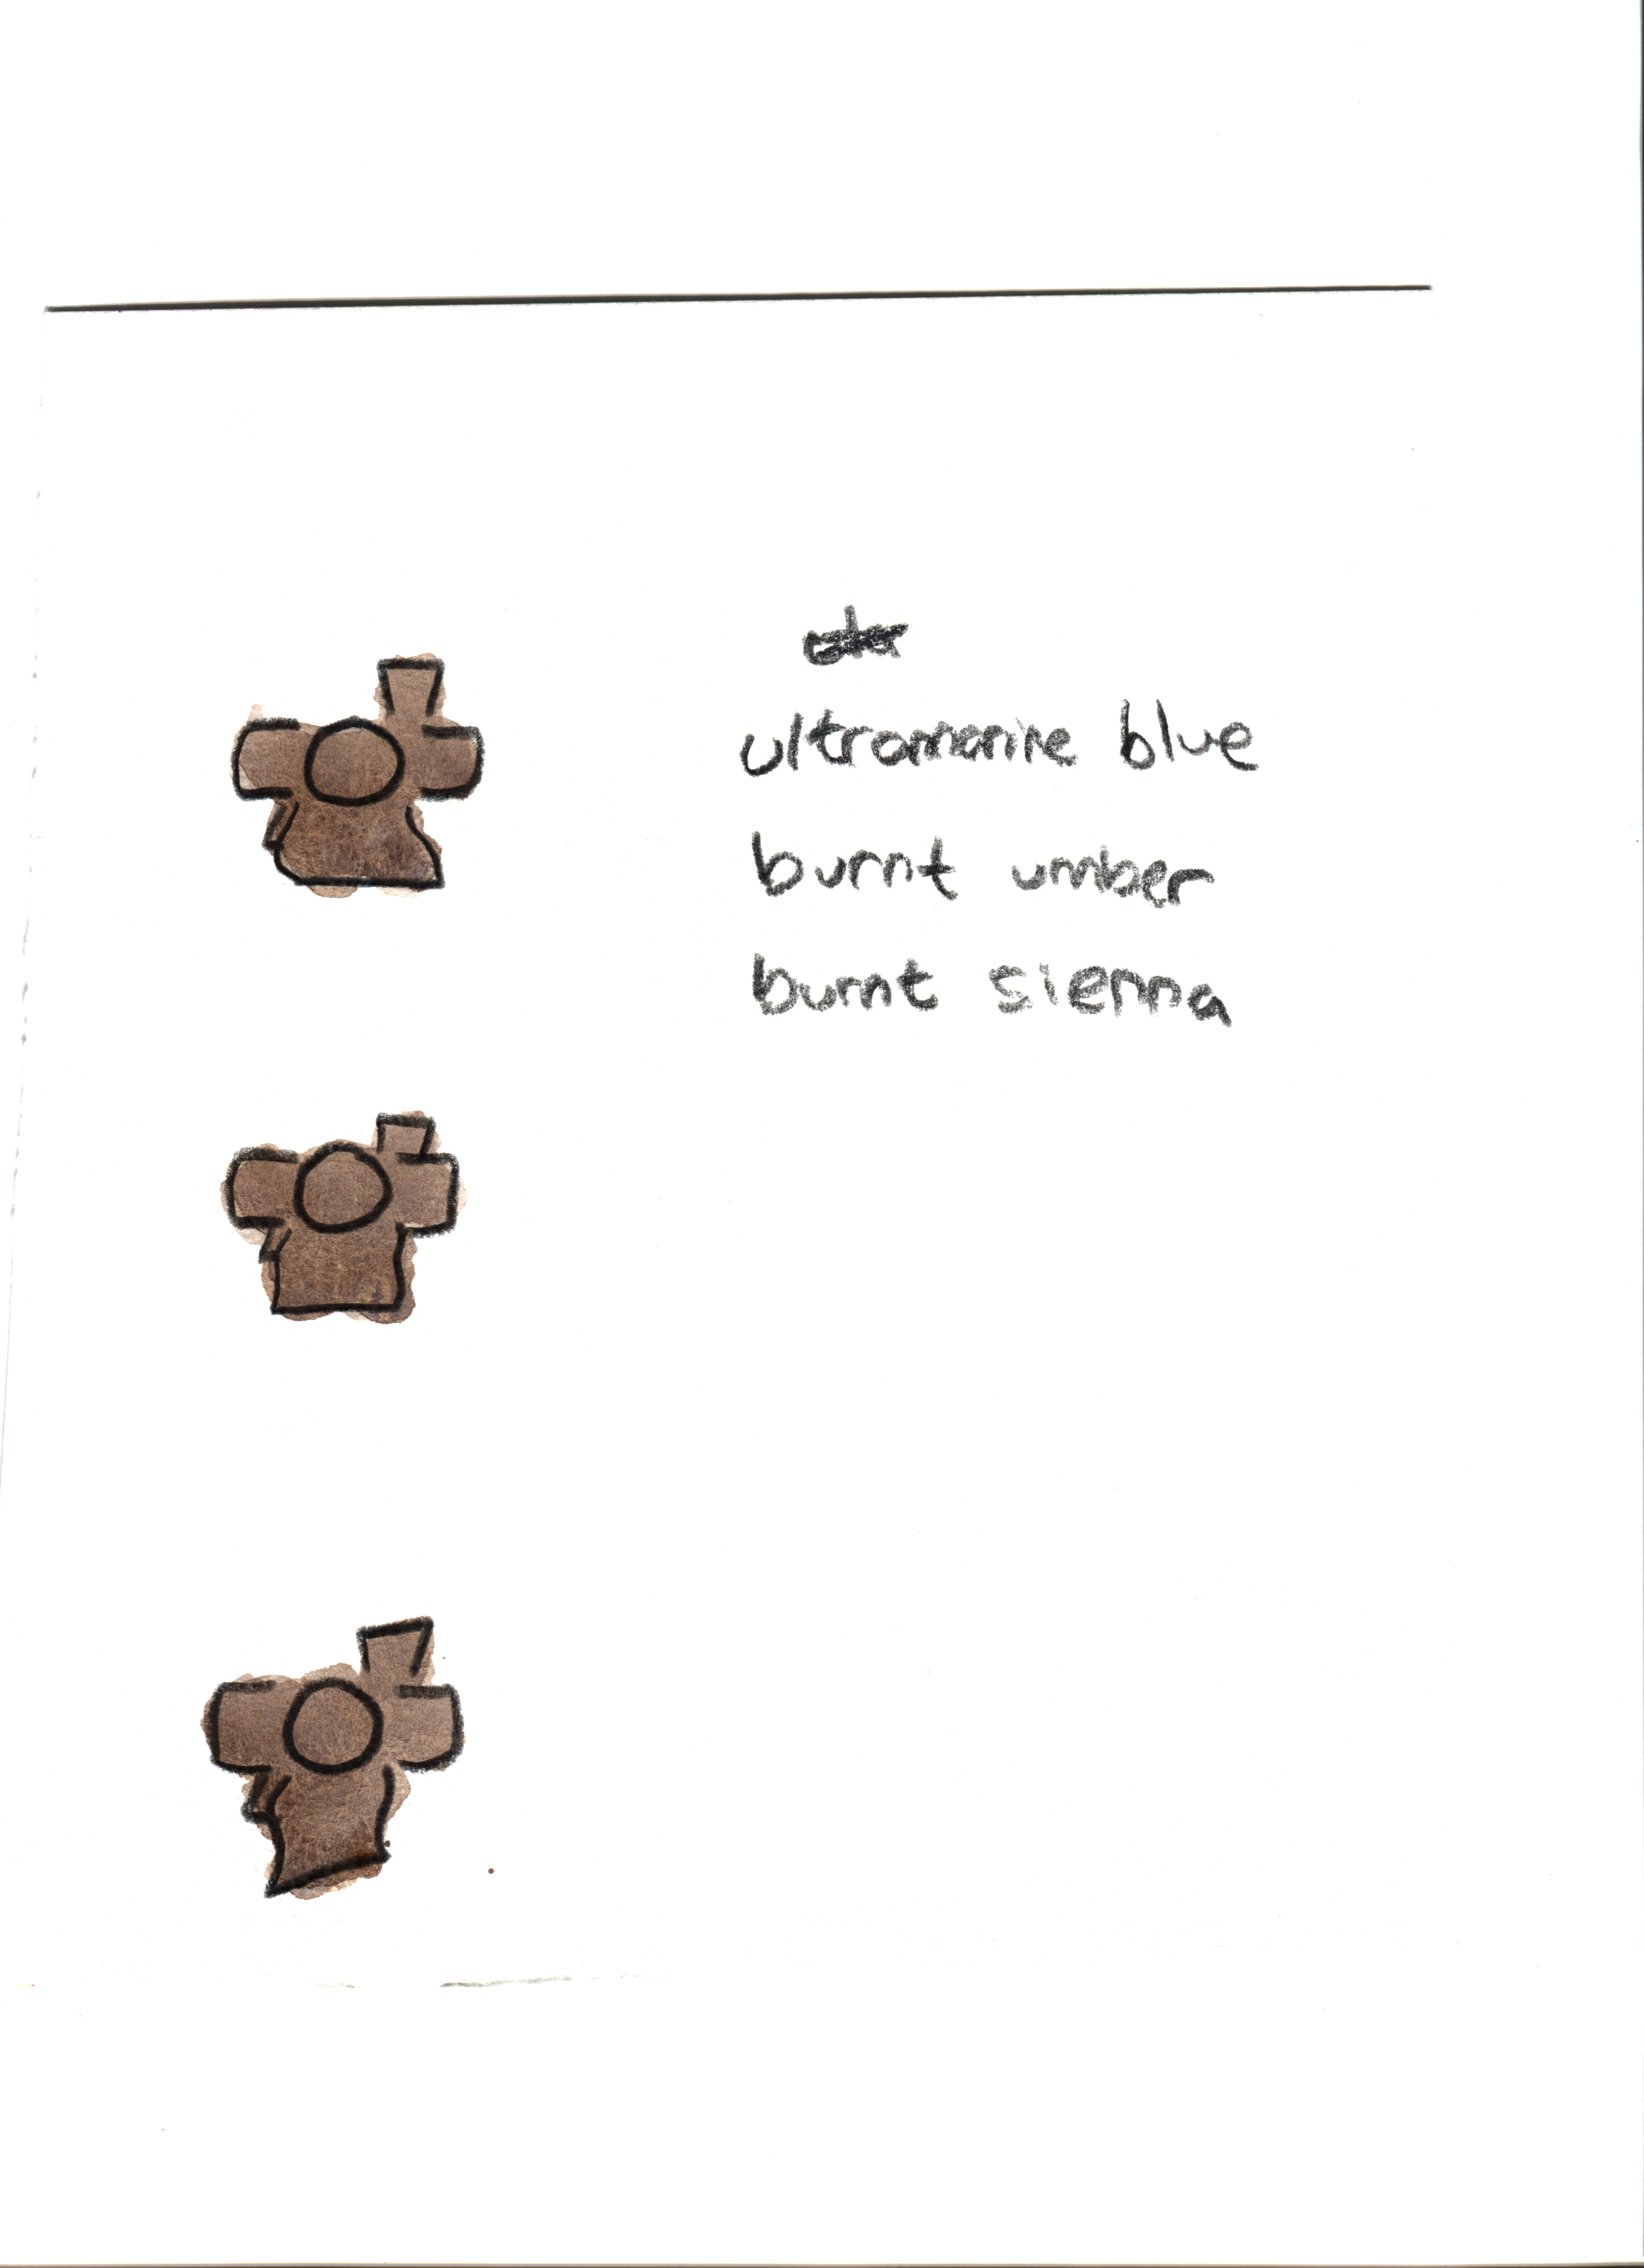 ultramarine blue
burnt umber
burnt sienna